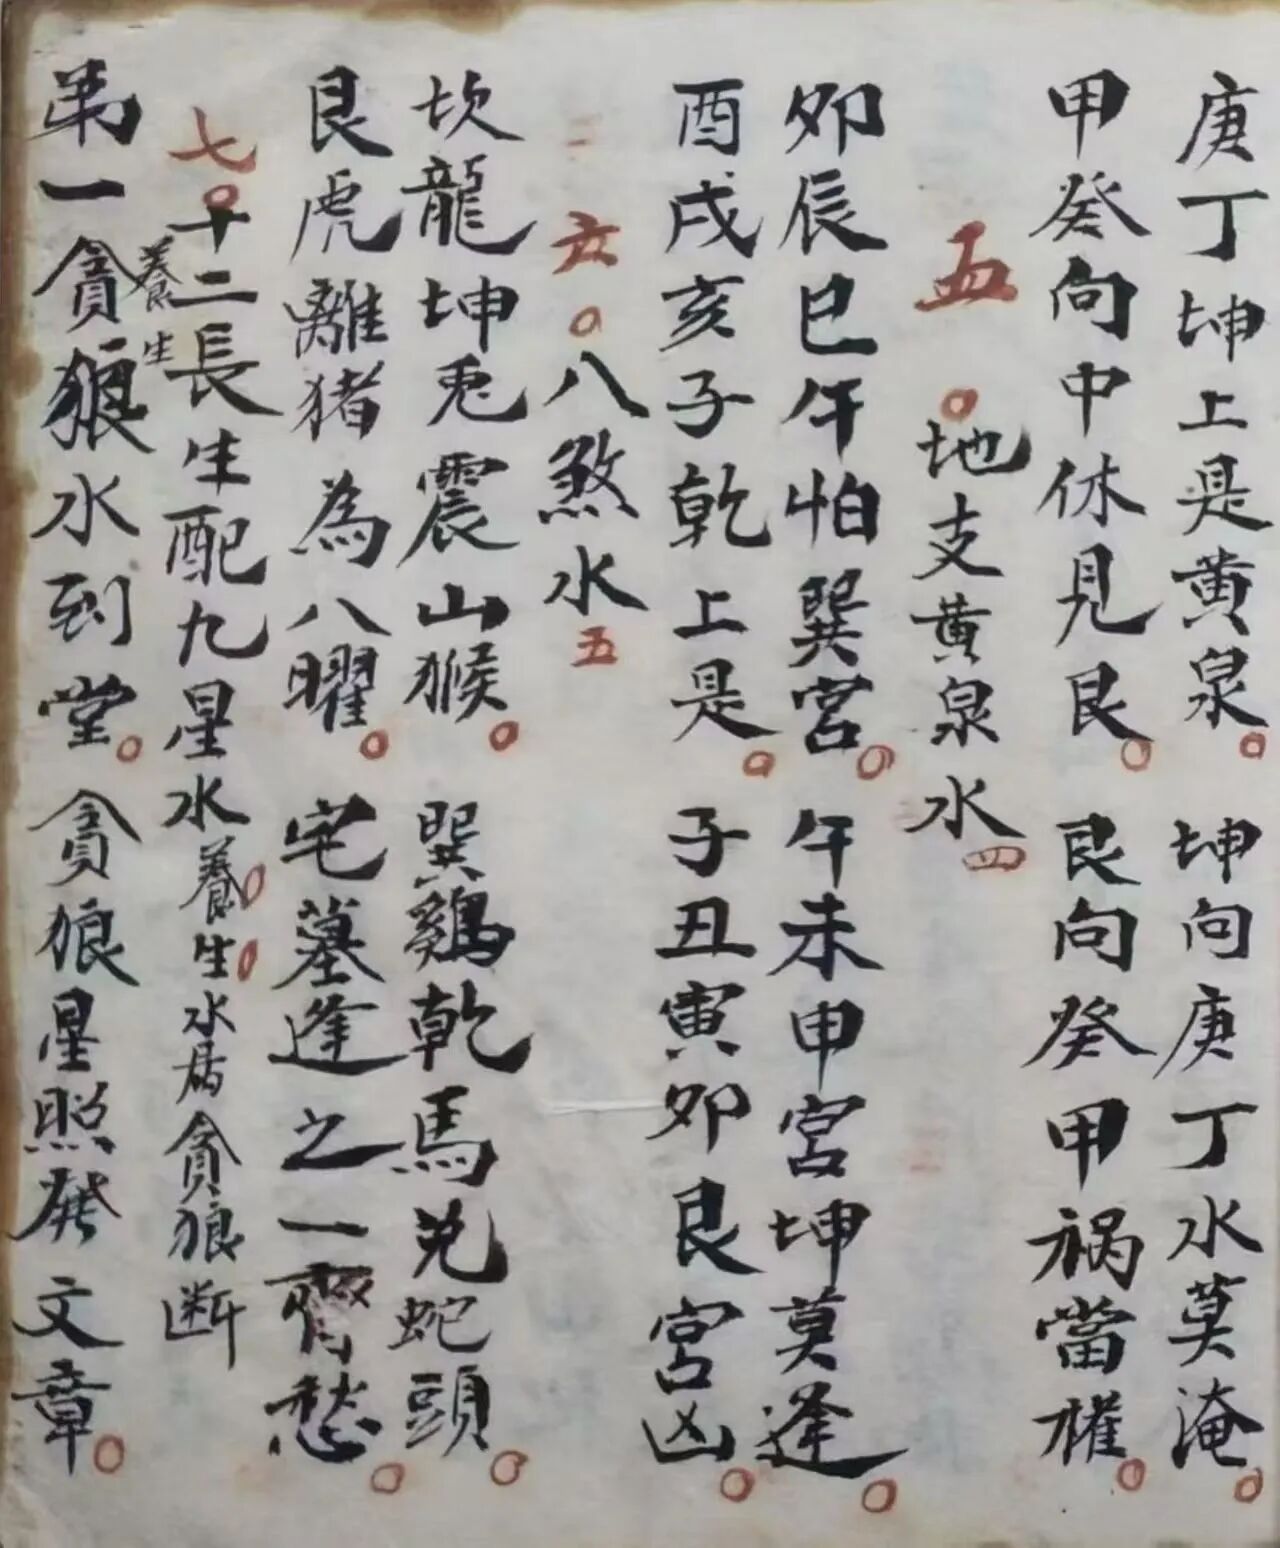 庚丁坤上是黄泉。坤向庚丁水莫淹。
甲癸向中休見艮。艮向癸甲祸當權。
五。地支黄泉水四
卯辰巳午怕巽宫。午未申宫坤莫逢。
酉戌亥子乾上是。子丑寅卯艮宫凶。
六。八煞水五
坎龍坤兎震山猴。巽鷄乾馬兊蛇頭。
艮虎離猪為八曜。宅墓逢之一齊愁。
七。十二長生配九星水養。生。水居貪狼断
養生
第一貪狼水到堂。貪狼星照発文章。